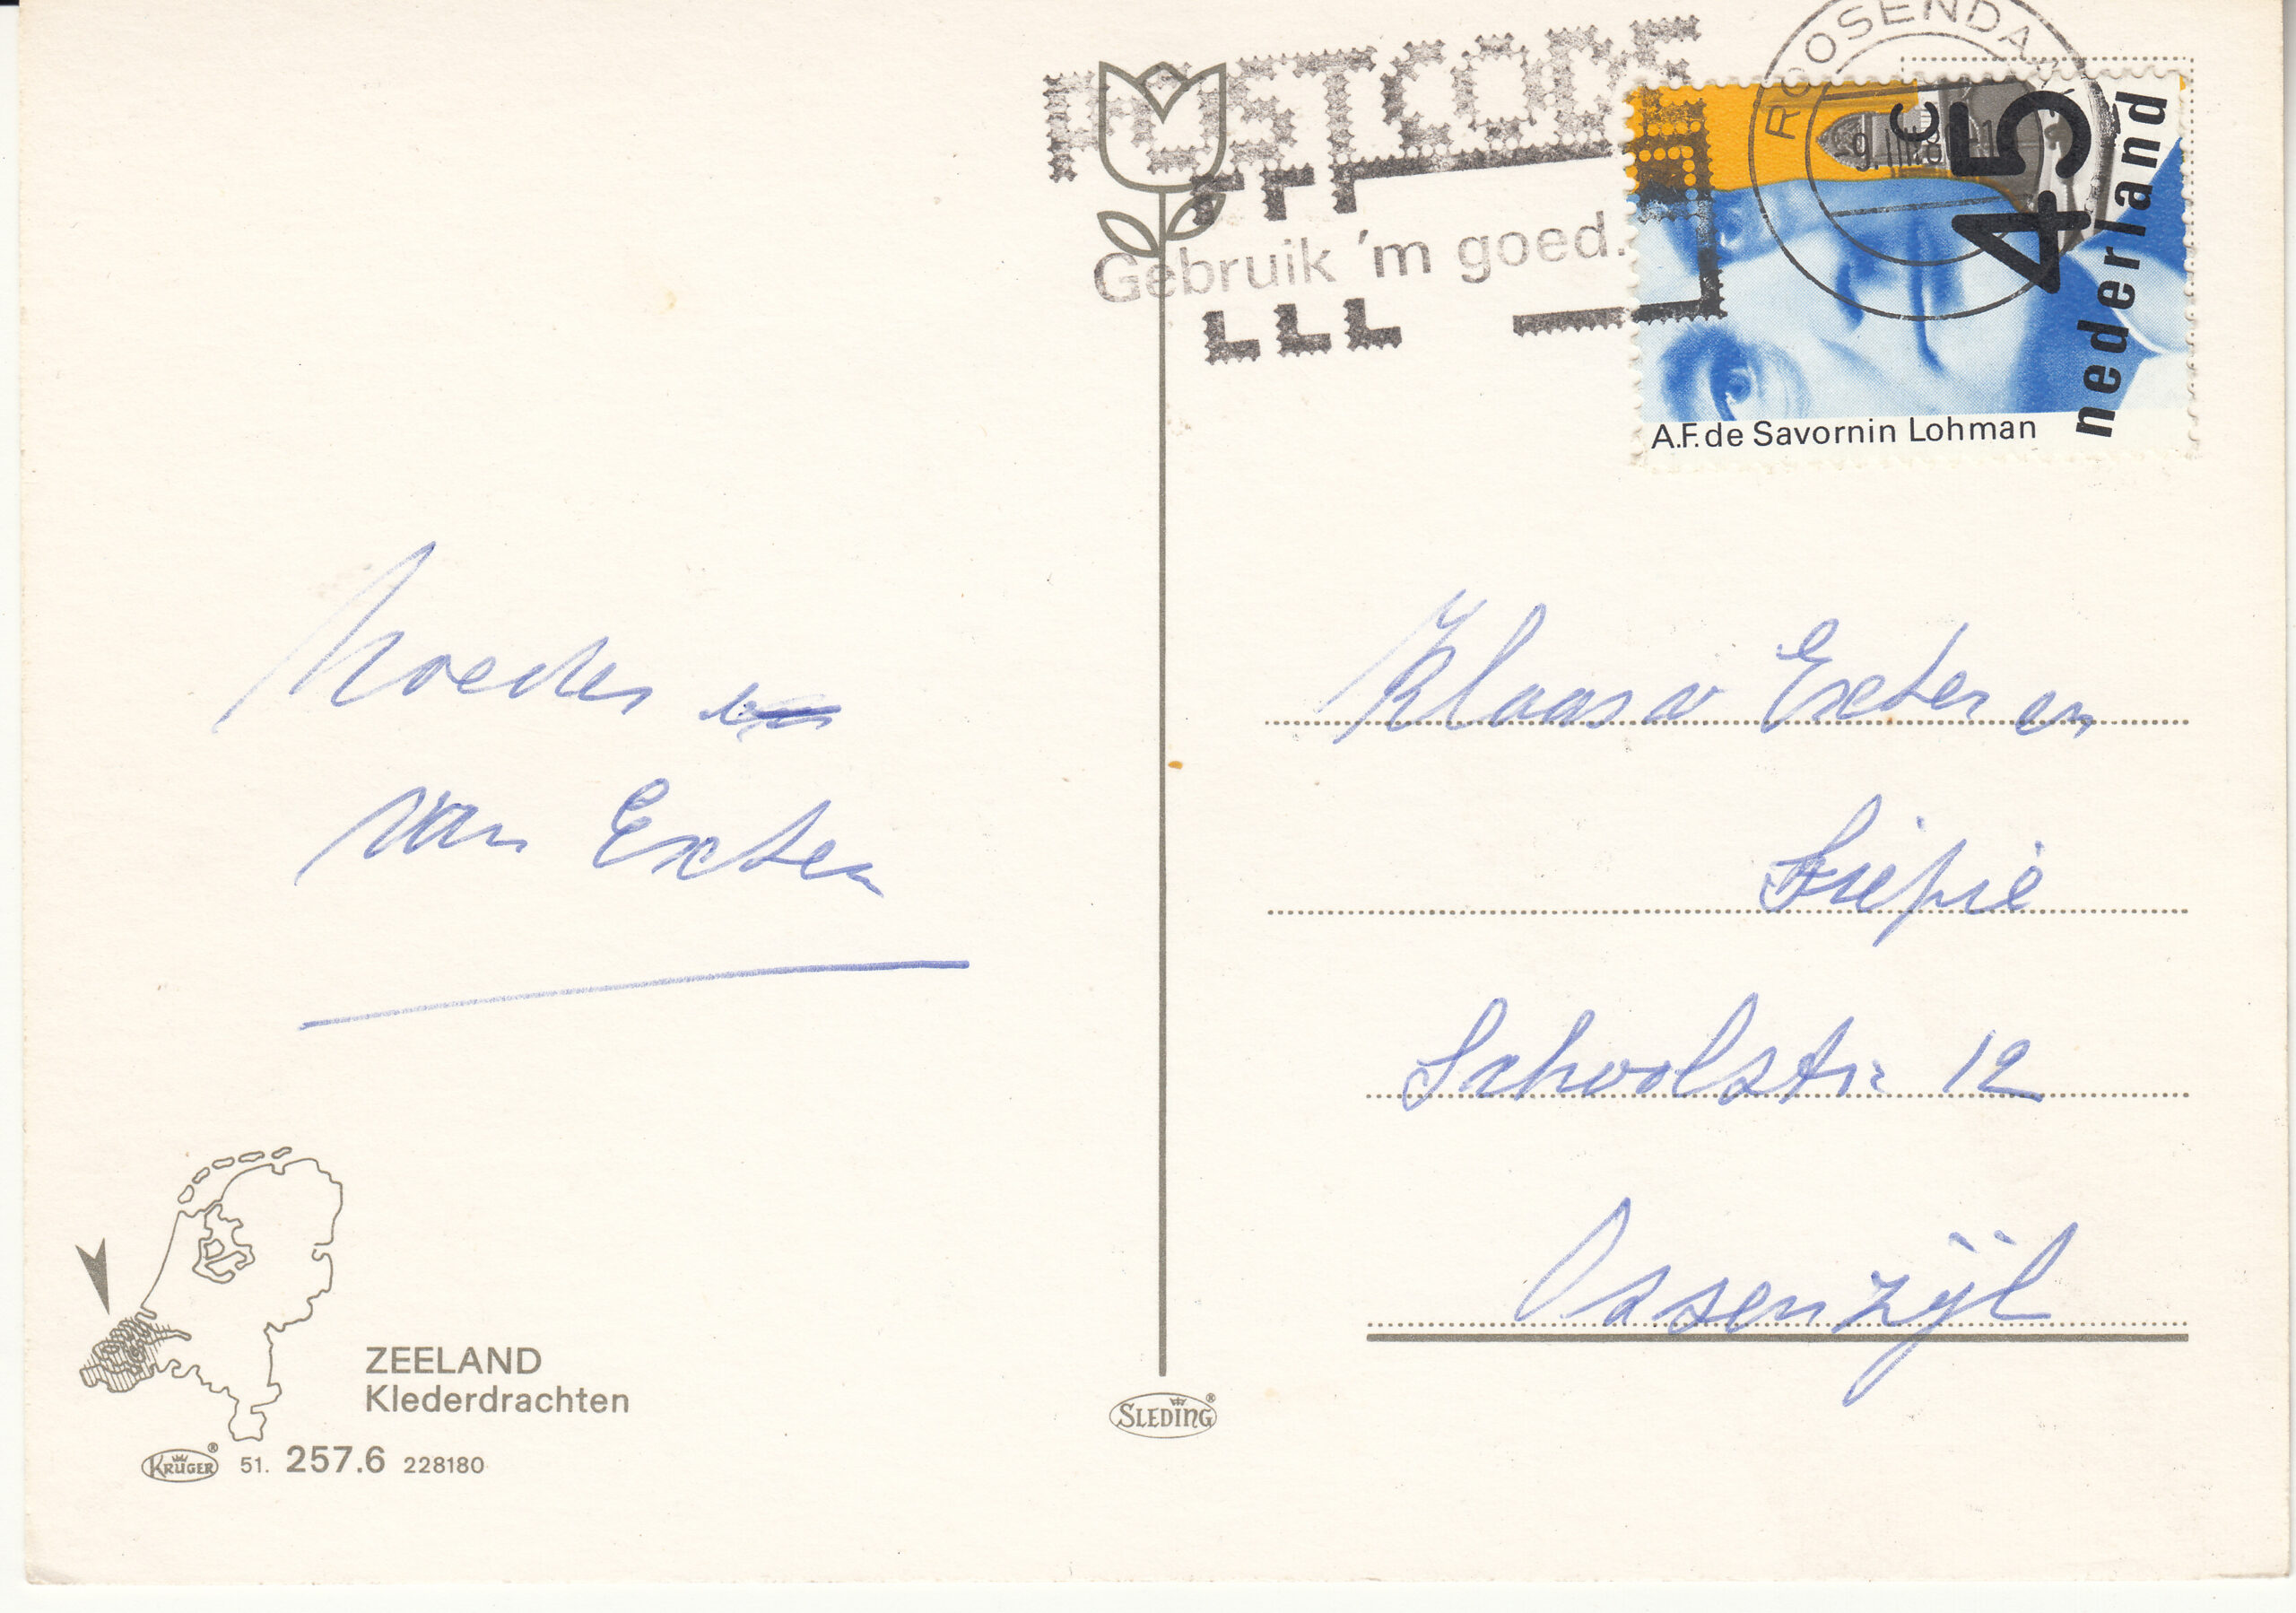 POSTCODE
Gebruik 'm goed.
ROOSENDAAL
45 c
nederland
A.F. de Savornin Lohman
Moeder
van Exter
Klaas v Exter en
Schoolstr 12
Ossenzijl
ZEELAND
Klederdrachten
KRÜGER 51. 257.6 228180
SLEDING